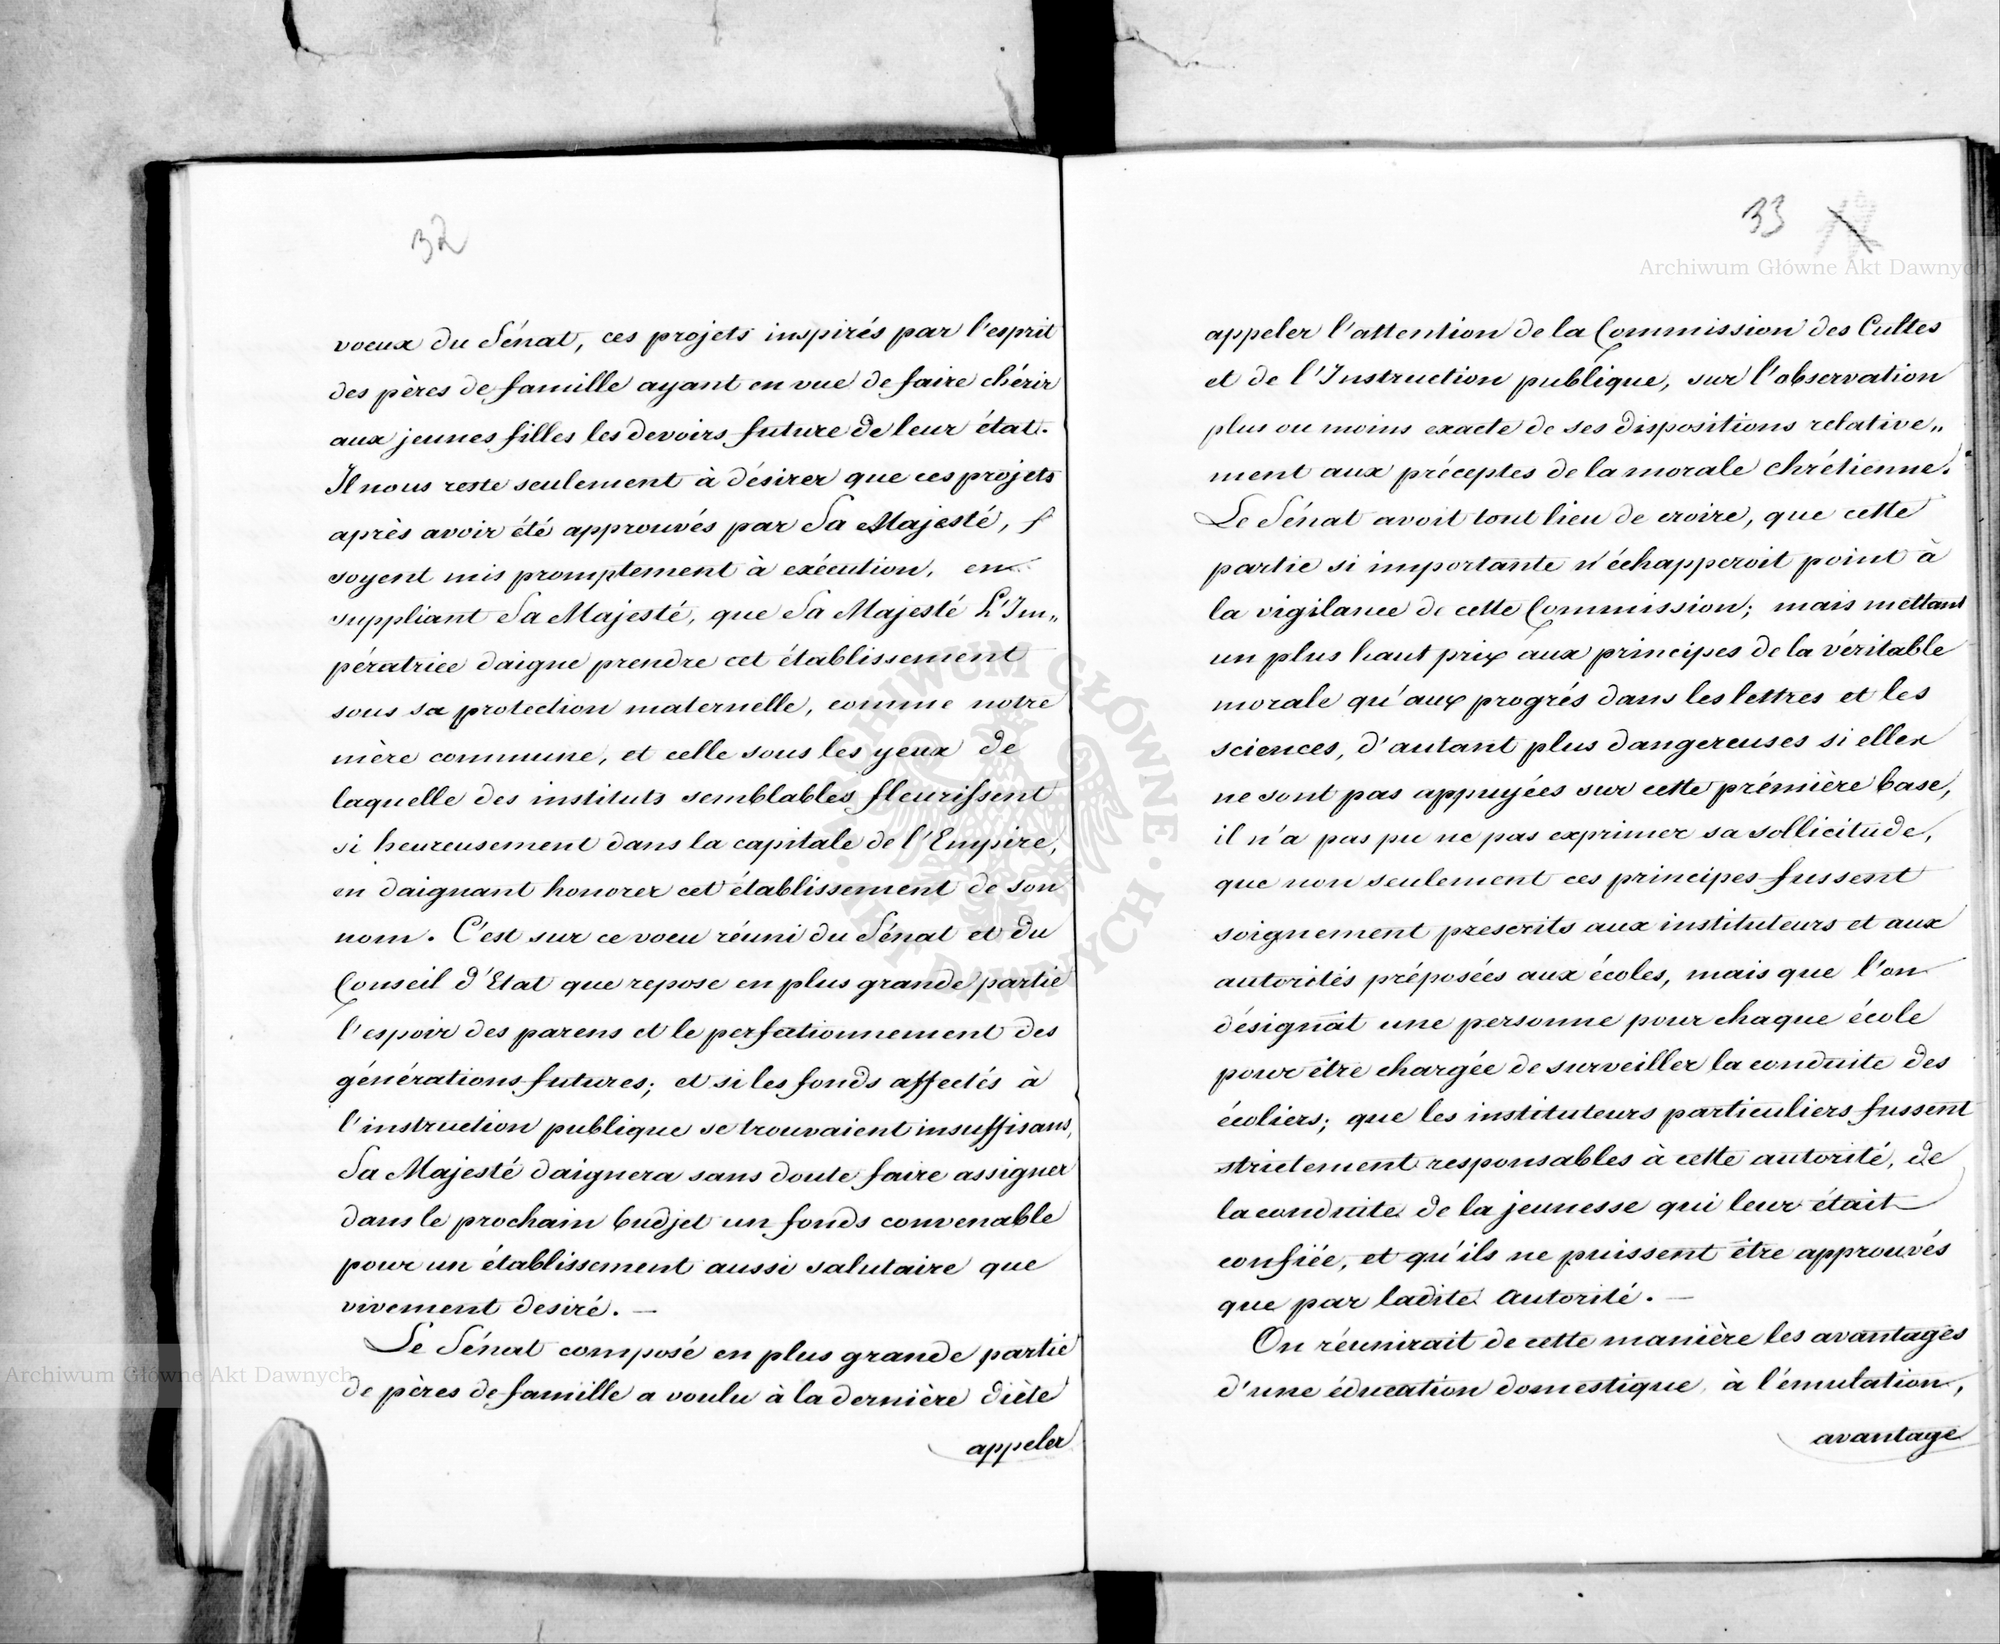 32
voeux du Sénat, ces projets inspirés par l'esprit
des pères de famille ayant en vue de faire chérir
aux jeunes filles les devoirs future de leur état.
Il nous reste seulement à désirer que ces projets
après avoir été approuvés par Sa Majesté,
soyent mis promptement à exécution, en
suppliant Sa Majesté, que Sa Majesté L'Im„
pératrice daigne prendre cet établissement
sous sa protection maternelle, comme notre
mère commune, et celle sous les yeux de
laquelle des instituts semblables fleurissent
si heureusement dans la capitale de l'Empire,
en daignant honorer cet établissement de son
nom. C'est sur ce voeu réuni du Sénat et du
Conseil d'Etat que repose en plus grande partie
l'espoir des parens et le perfectionnement des
générations futures; et si les fonds affectés à
l'instruction publique se trouvaient insuffisans,
Sa Majesté daignera sans doute faire assigner
dans le prochain budjet un fonds convenable
pour un établissement aussi salutaire que
vivement desiré. —
Le Sénat composé en plus grande partie
de pères de famille a voulu à la dernière diète
appeler
33
appeler l'attention de la Commission des Cultes
et de l'Instruction publique, sur l'observation
plus ou moins exacte de ses dispositions relative„
ment aux préceptes de la morale chrétienne.
Le Sénat avoit tout lieu de croire, que cette
partie si importante n'échapperoit point à
la vigilance de cette Commission; mais mettant
un plus haut prix aux principes de la véritable
morale qu'aux progrés dans les lettres et les
sciences, d'autant plus dangereuses si elles
ne sont pas appuyées sur cette prémière base,
il n'a pas pu ne pas exprimer sa sollicitude,
que non seulement ces principes fussent
soignement prescrits aux instituteurs et aux
autorités préposées aux écoles, mais que l'on
désignât une personne pour chaque école
pour être chargée de surveiller la conduite des
écoliers; que les instituteurs particuliers fussent
strictement responsables à cette autorité, de
la conduite de la jeunesse qui leur était
confiée, et qu'ils ne puissent être approuvés
que par ladite autorité. —
On réunirait de cette manière les avantages
d'une éducation domestique à l'émulation,
avantage
Archiwum Główne Akt Dawnych
Archiwum Główne Akt Dawnych
ARCHIWUM GŁÓWNE AKT DAWNYCH